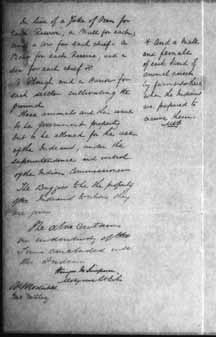 In lieu of a Yoke of Oxen for
each Reserve, a Bull for each,
and a Cow for each Chief. A
Boar for each Reserve, and a
Sow for each Chief &
A Plough and a Harrow for
each settler cultivating the
ground.
These animals and their issue
to be Government property
but to be allowed for the use
of the Indians, under the
superintendence and control
of the Indian Commissioner.
The Buggies to be the property
of the Indians to whom they
are given.
The above contains
an inventory of the
Terms concluded with
the Indians.
& And a Male
and female
of each kind of
animal raised
by farmers, these
when the Indians
are prepared to
receive them.